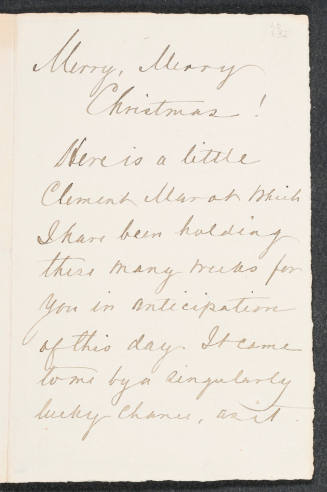 Merry, Merry
Christmas!
Here is a little
Clement Marot which
I have been holding
these many weeks for
you in anticipation
of this day. It came
to me by a singularly
lucky chance, as it